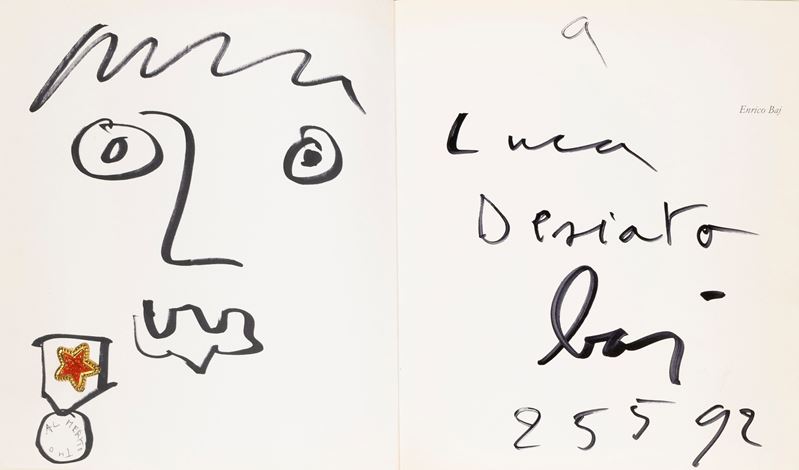 AL MERITTHO
a
Enrico Baj
Luca
Desiato
baj
25 5 92